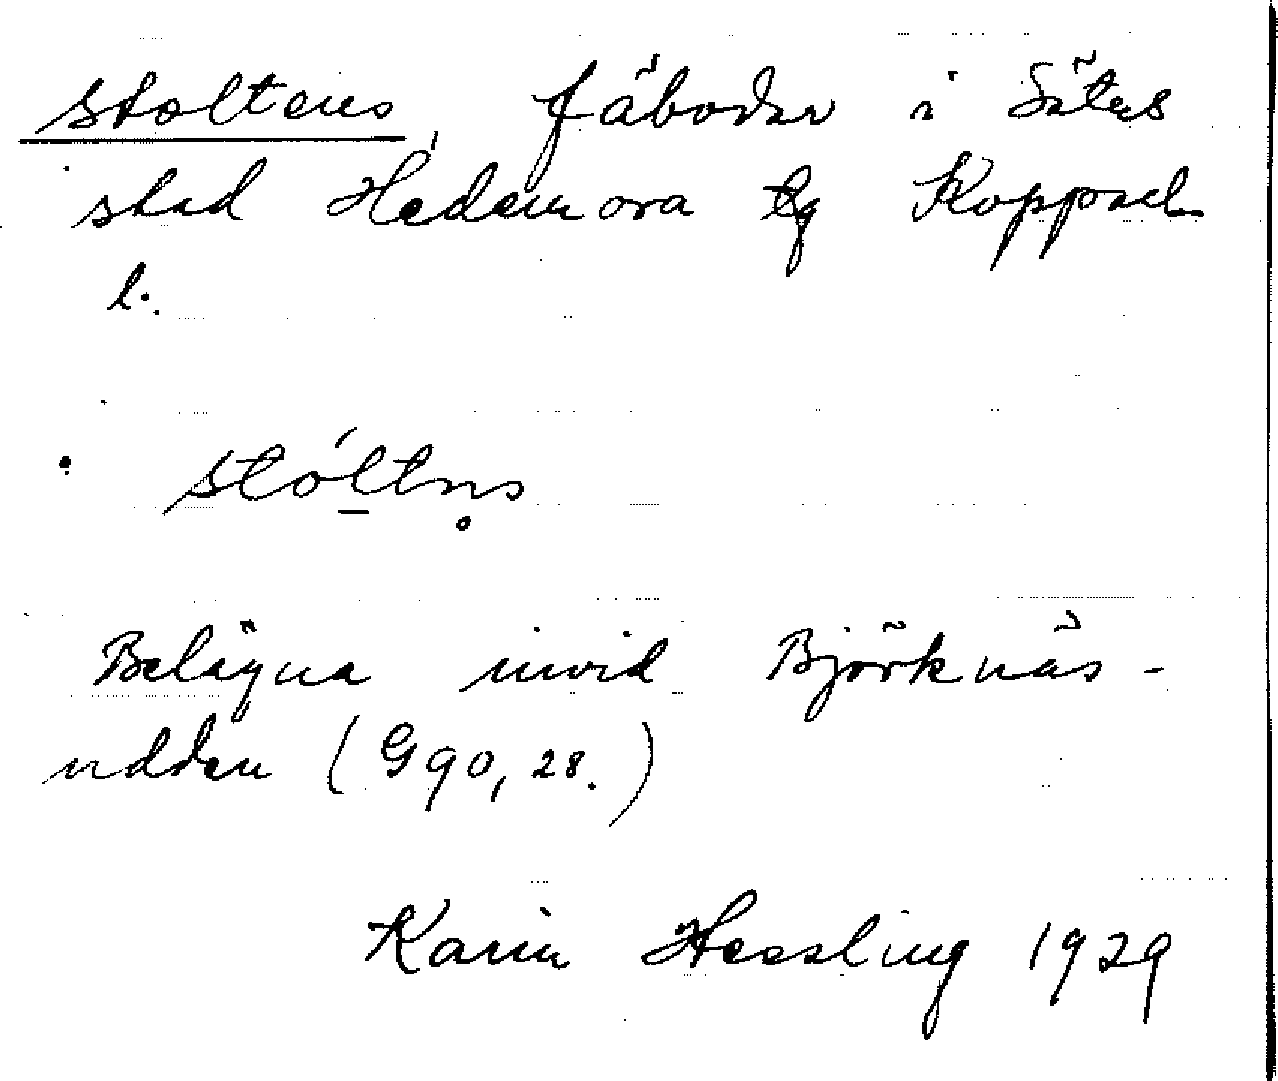 Stoltens, fäboder i Säters
stad Hedemora tg Kopparb
l.
stóltn̥s
Belägna invid Björknäs-
udden (G 90, 28.)
Karin Hessling 1929